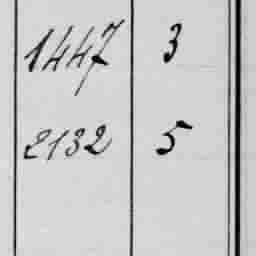 1447 3
2132 5